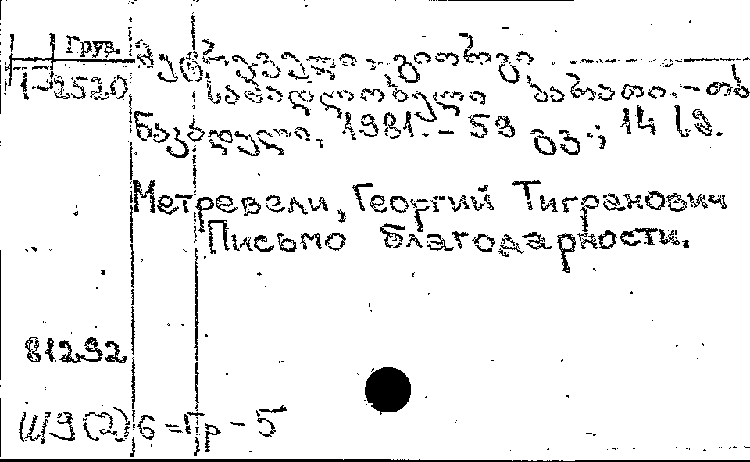 Груз.
1-2520
მეტრეველი, გიორგი
სამადლობელი ბარათი. - თბ.
ნაკადული, 1981. - 59 გვ.; 14 სმ.
Метревели, Георгий Тигранович
Письмо благодарности.
81292
Ш9(2)6=Гр-5